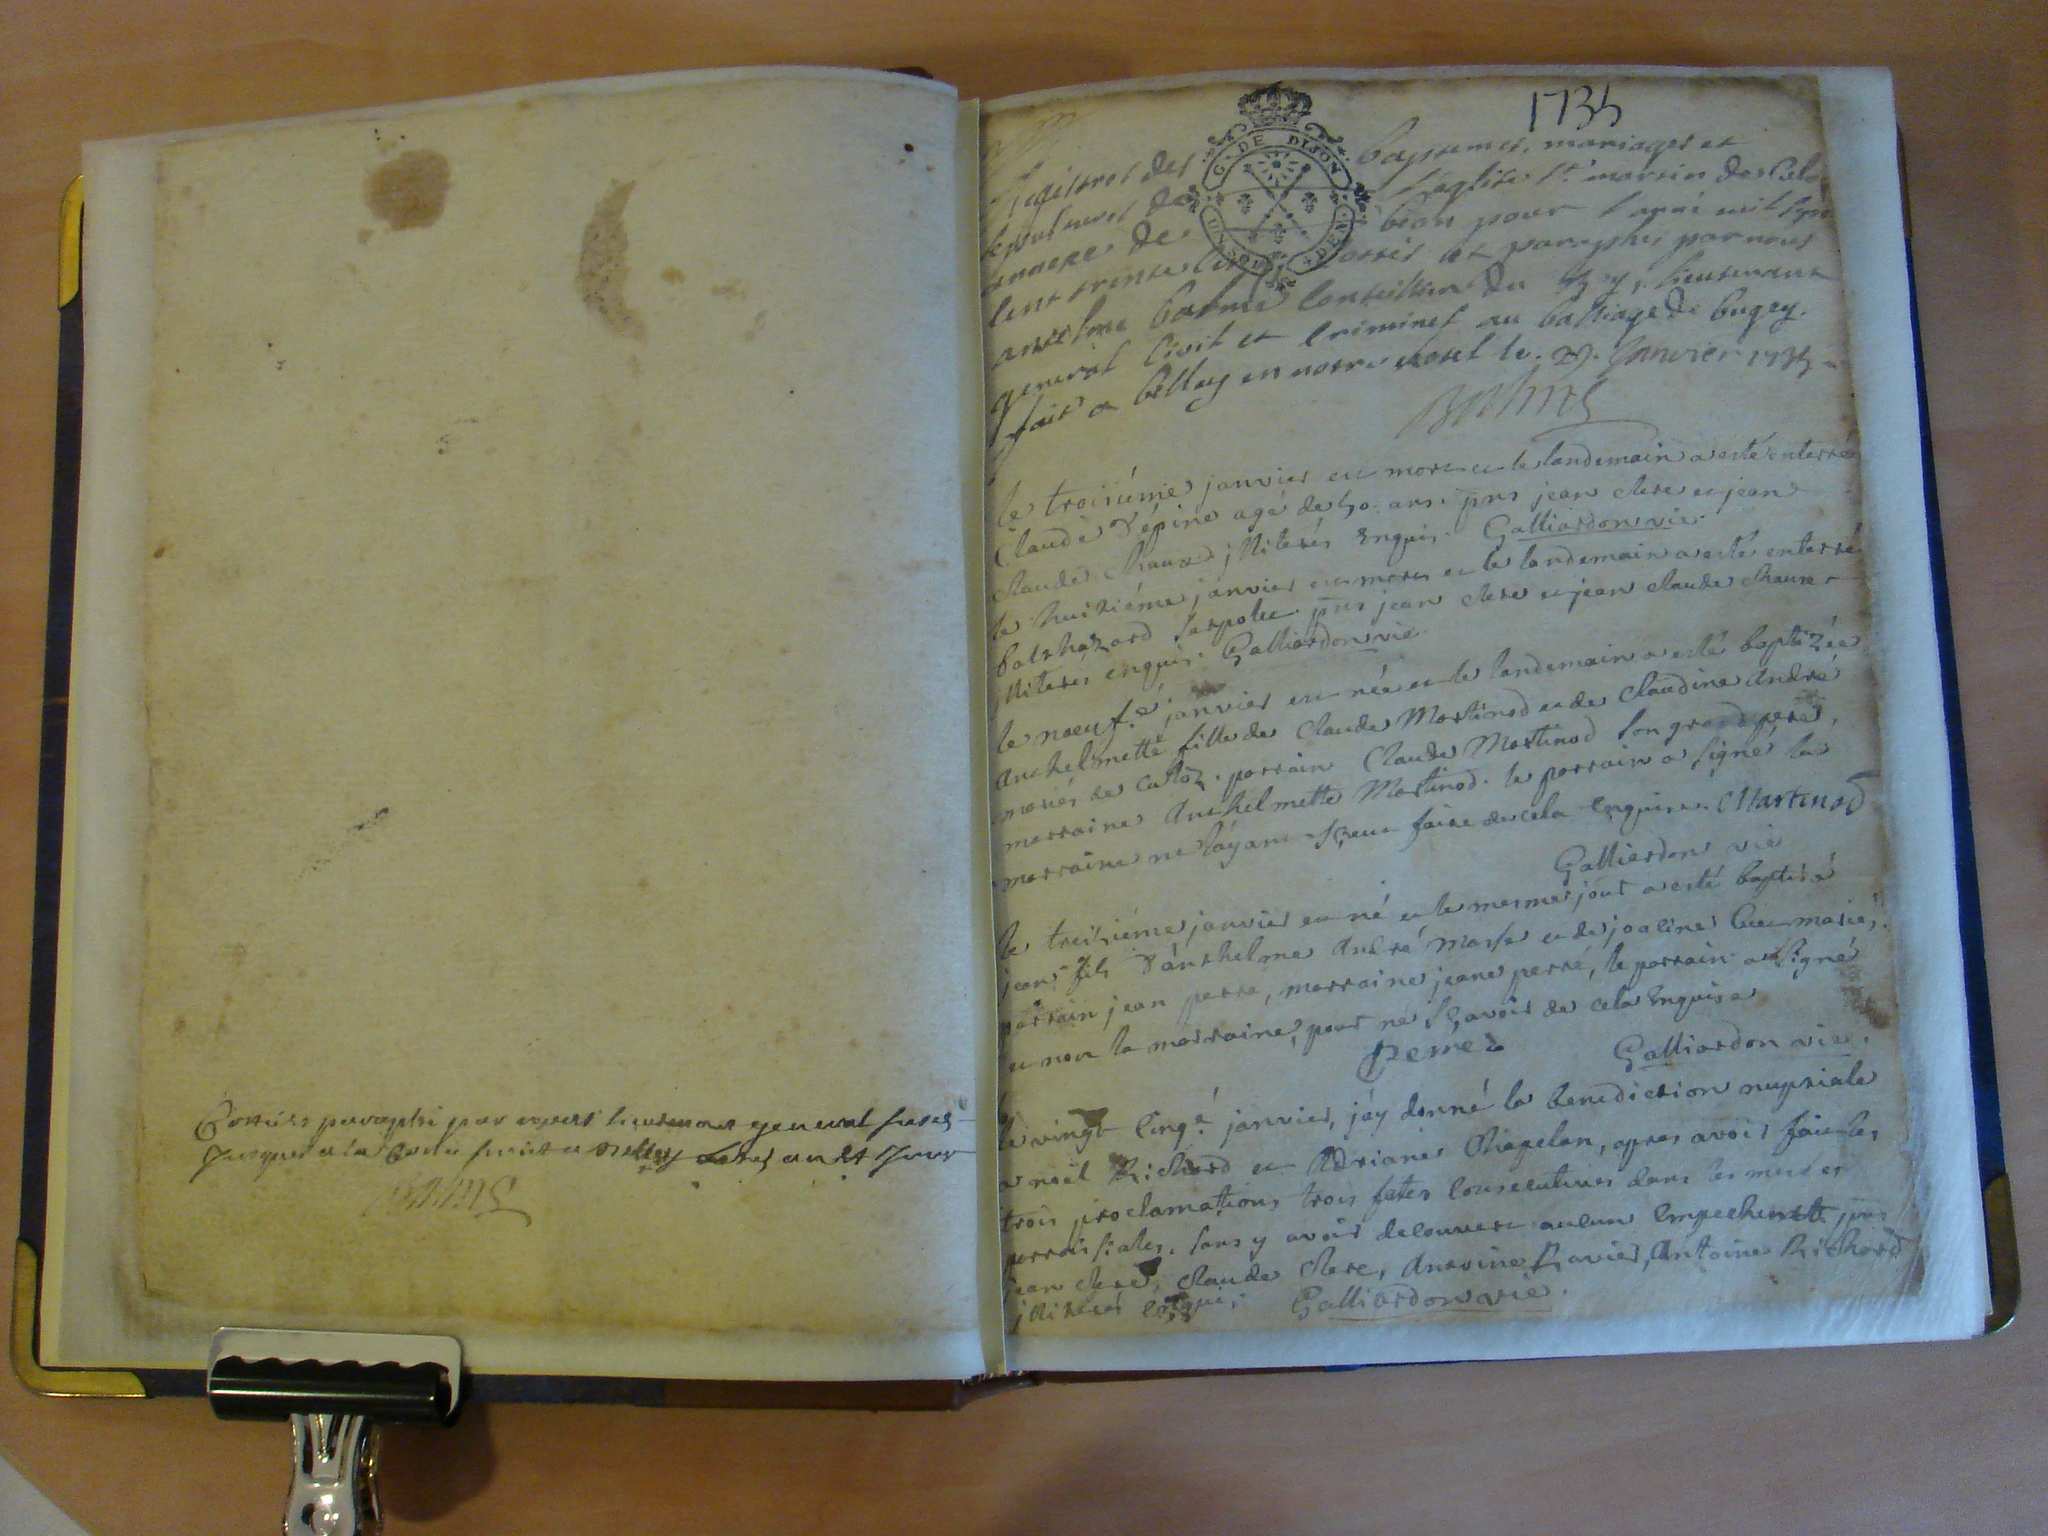 Cottées paraphé par nous lieutenant general
jusques a la
Balme
1735
G. DE DIJON
Registres des baptemes, mariages et
sepultures de l'eglise St martin de
annexe de beon pour l'anné mil sept
cent trente cinq, cottés et paraphés par nous
anthelme balme Conseiller du Roy, lieutenant
general civil et criminel au balliage de bugey.
fait a belley en notre hotel le 29. Janvier 1735
Balme
le troisiéme janvier est mort et le landemain a esté enterré
Claude d'épine agé de 50 ans. pns jean clerc et jean
claude Chaux jlliterés enquis. Galliardon vic.
le huitiéme janvier est mort et le landemain a esté enterré
balthazard pns jean clerc et jean claude chaux
jlliterés enquis. Galliardon vic
le noeuf.e janvier est née et le landemain a esté baptizée
Anthelmette fille de Claude Martinod et de Claudine André
mariés de culoz. parrain Claude Martinod son grand pere,
marraine Anthelmette Martinod. le parrain a signé la
marraine ne l'áyant sçeut faire de cela enquise. Martinod
Galliardon vic
le treiziéme janvier est né et le mesme jour a esté baptisé
jean fils d'ánthelme André Masse et de joaline Cuet mariés,
parrain jean perre, marraine jeane perré, le parrain a signé
et non la marraine, pour ne sçavoir de cela enquise
Galliardon vic.
le vingt cinq.e janvier, j'éy donné la benediction nuptiale
a noël Richard et Adriane Chapelan, apres avoir fait les
trois proclamations trois fetes consecutives dans les messes
parroissiales, sans y avoir decouvert aucun empechemt. pns
jean clerc, claude clerc, Antoine Ravier, Antoine Richard
jlliterés enquis. Galliardon vic.